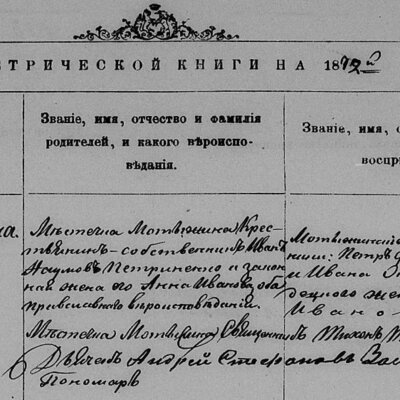 ТРИЧЕСКОЙ КНИГИ НА 1872й
Званіе, имя, отчество и фамилія
родителей, и какого вѣроиспо-
вѣданія.
Званіе, имя, о
воспр
Мѣстечка Мотыжина Крес-
тьянинъ-собственникъ Иванъ
Наумовъ Петриненко и закон-
ная жена его Анна Иванова, оба
православнаго вѣроисповѣданія.
Мотыжинскіе
Петръ
и Ивана
жен
Ивано
Мѣстечка Мотыжина Священникъ Тихонъ
Дьячекъ Андрей Стефановъ
Пономарь